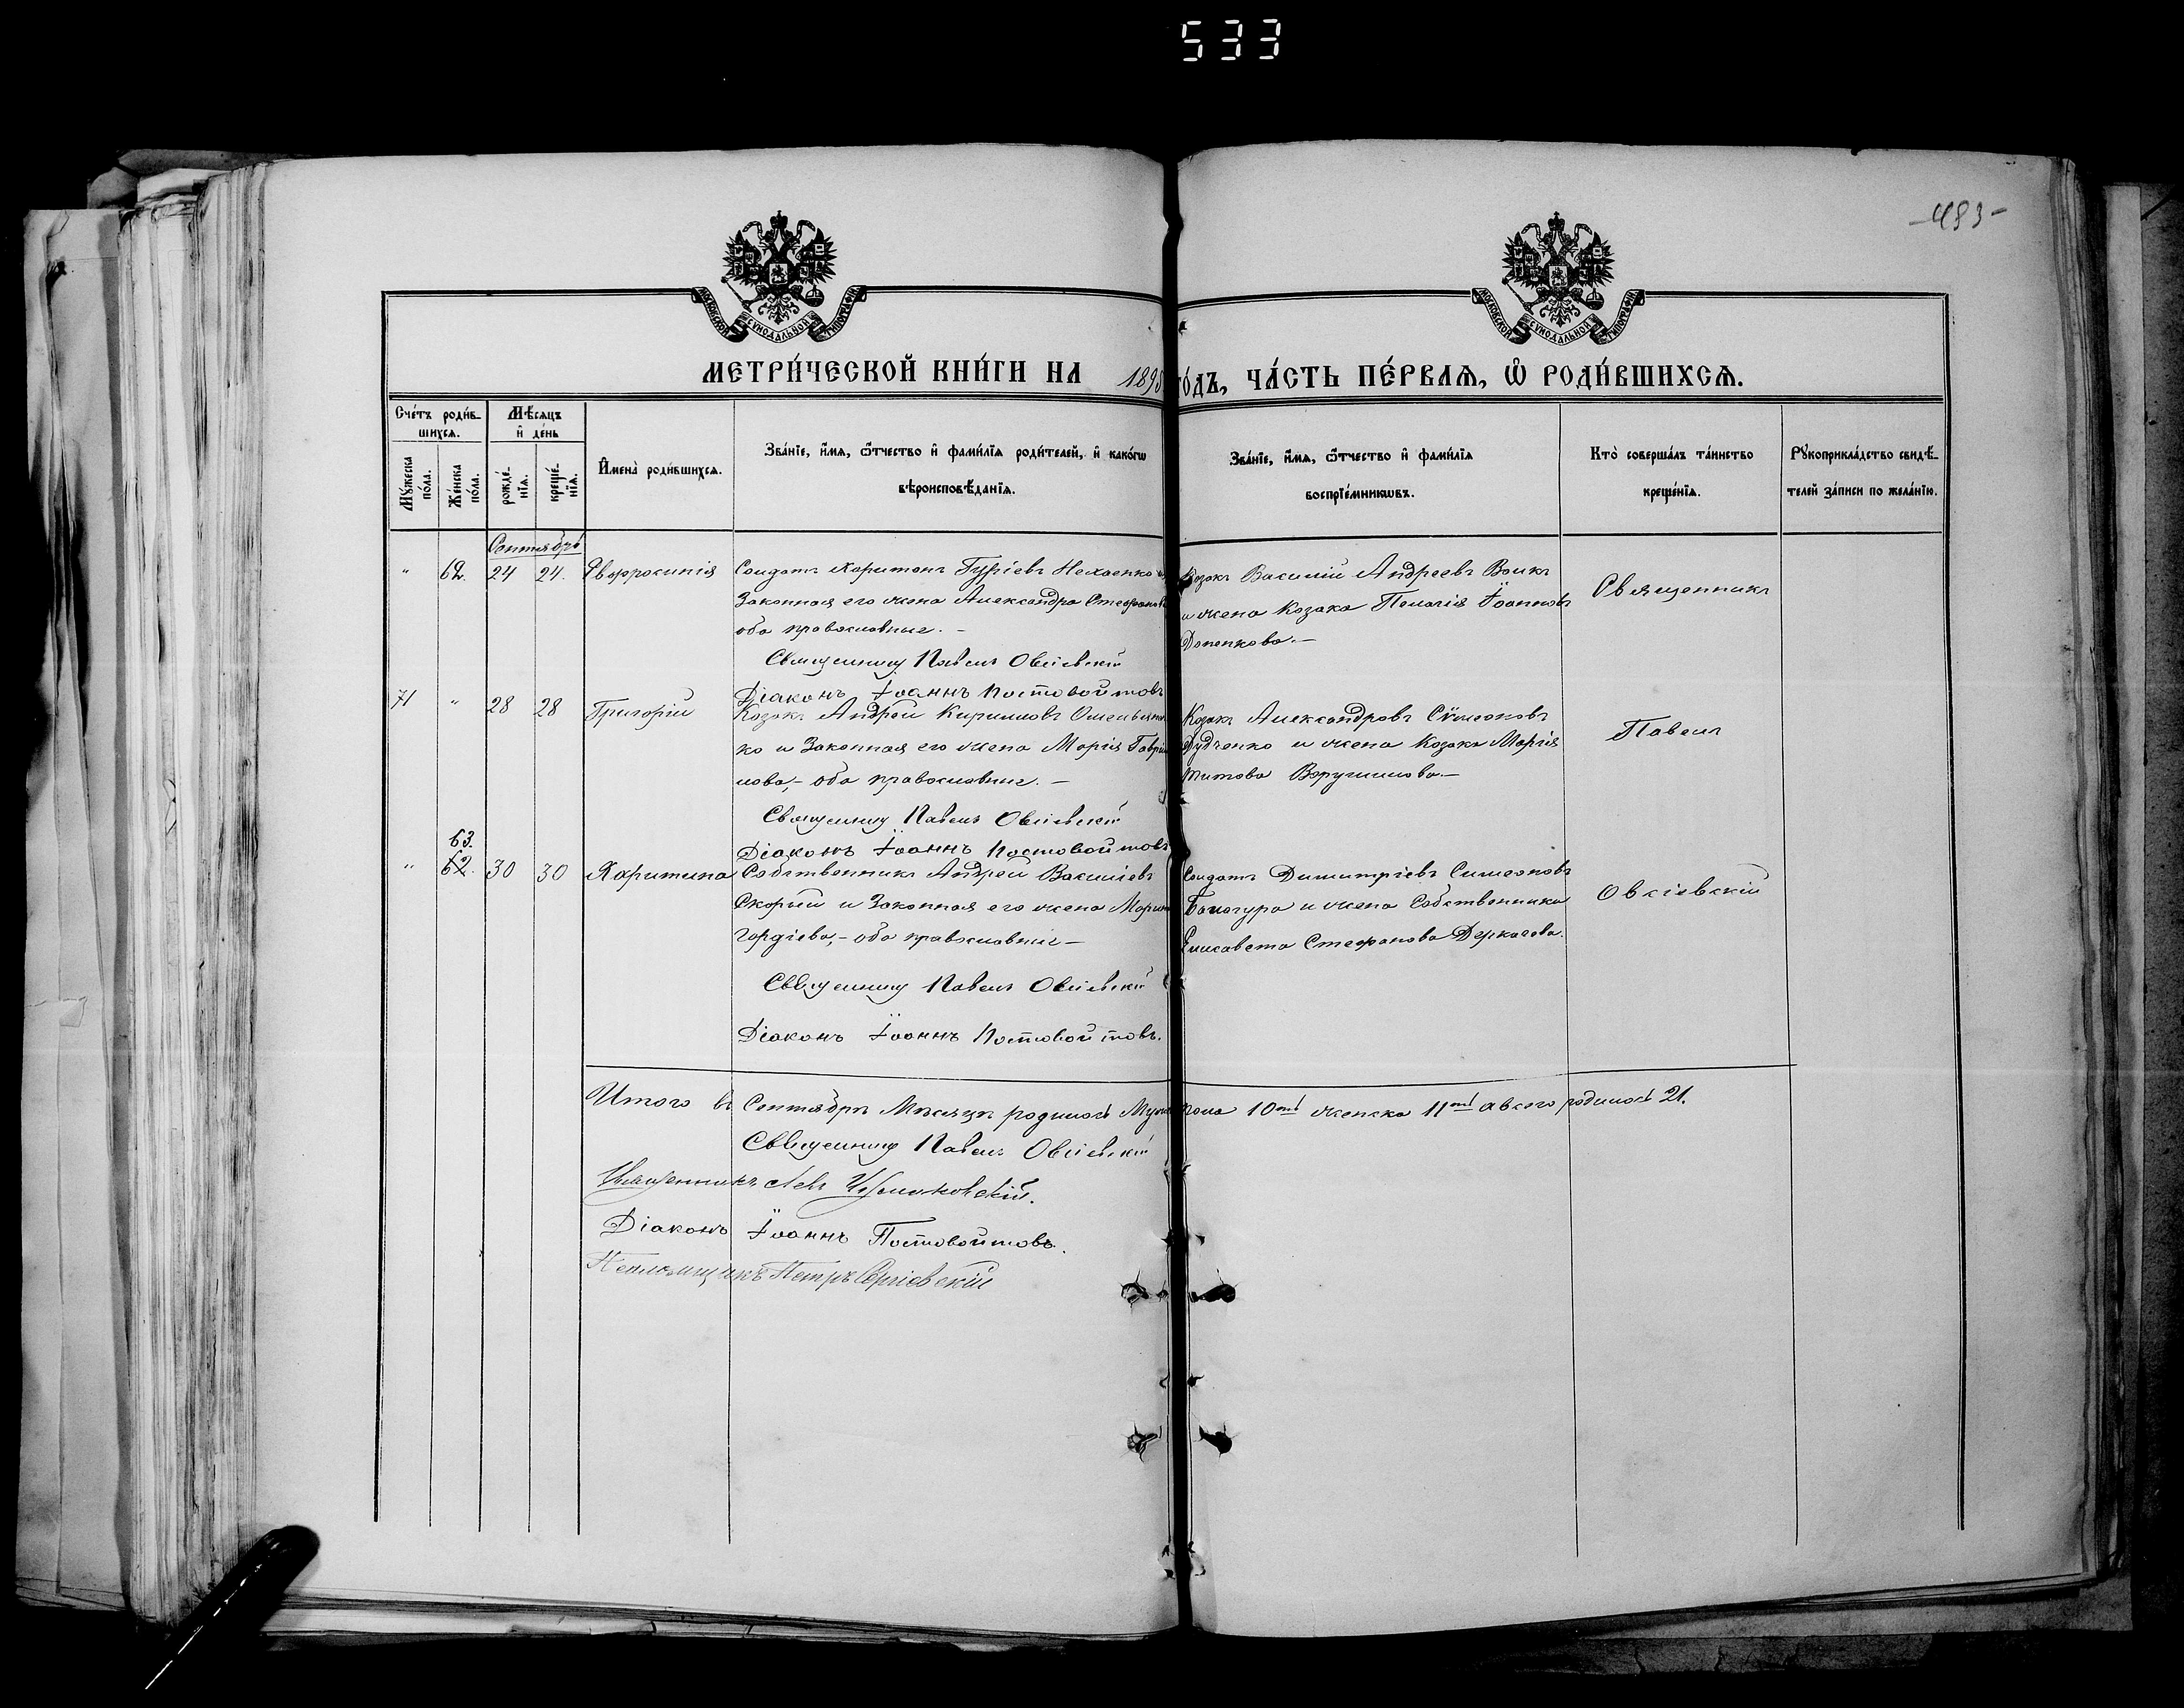 533
-483-
МОСКОВСКОЙ СУНОДАЛЬНОЙ ТИПОГРАФІИ
МОСКОВСКОЙ СУНОДАЛЬНОЙ ТИПОГРАФІИ
МЕТРИ́ЧЕСКОЙ КНИ́ГИ НА 1895 ГО́ДЪ, ЧА́СТЬ ПЕ́РВАѦ, Ѡ҆ РОДИ́ВШИХСѦ.
Сче́тъ роди́в-
шихсѧ.
Мꙋ́жеска по́ла.
Же́нска по́ла.
Мѣ́сѧцъ
и҆ де́нь
рожде́-нїѧ.
креще́-нїѧ.
И҆мена̀ роди́вшихсѧ.
Зва́нїе, и҆́мѧ, ѻ҆́тчество и҆ фами́лїѧ роди́телей, и҆ како́гѡ
вѣроисповѣ́данїѧ.
Зва́нїе, и҆́мѧ, ѻ҆́тчество и҆ фами́лїѧ
воспрїе́мникѡвъ.
Кто̀ соверша́лъ та́инство
креще́нїѧ.
Рꙋкоприкла́дство свидѣ́-
телей за́писи по жела́нїю.
Сентябрь
" 62. 24 24. Евфросинія Солдатъ Харитонъ Гурьевъ Нехаенко и
Законная его жена Александра Стефанова
оба православные. -
Священникъ Павелъ Овсіевскій
Діаконъ Іоаннъ Постовойтовъ
Козакъ Василій Андреевъ Волкъ
и жена Козака Пелагія Іоаннов
Доненкова. -
Священникъ
71 " 28 28 Григорій Козакъ Андрей Кирилловъ Омельянен
ко и Законная его жена Марія Гаврии
лова, - оба православные. -
Священникъ Павелъ Овсіевскій
Діаконъ Іоаннъ Постовойтовъ
Козакъ Александръ Сѵмеоновъ
Дудченко и жена Козака Марія
Титова Ворушилова. -
Павелъ
63.
" 62. 30 30 Харитина Собственникъ Андрей Васильевъ
Скорый и Законная его жена Марина
Гордіева, - оба православные -
Священникъ Павелъ Овсіевскій
Діаконъ Іоаннъ Постовойтовъ.
Солдатъ Димитріевъ Симеоновъ
Балагура и жена Собственника
Елисавета Стефанова Деркачева.
Овсіевскій
Итого въ Сентябрѣ Мѣсяцѣ родилось Муж пола 10ть женска 11ть а всего родилось 21.
Священникъ Павелъ Овсіевскій
Священникъ Левъ
Діаконъ Іоаннъ Постовойтовъ.
Псаломщикъ Петръ Сергіевскій